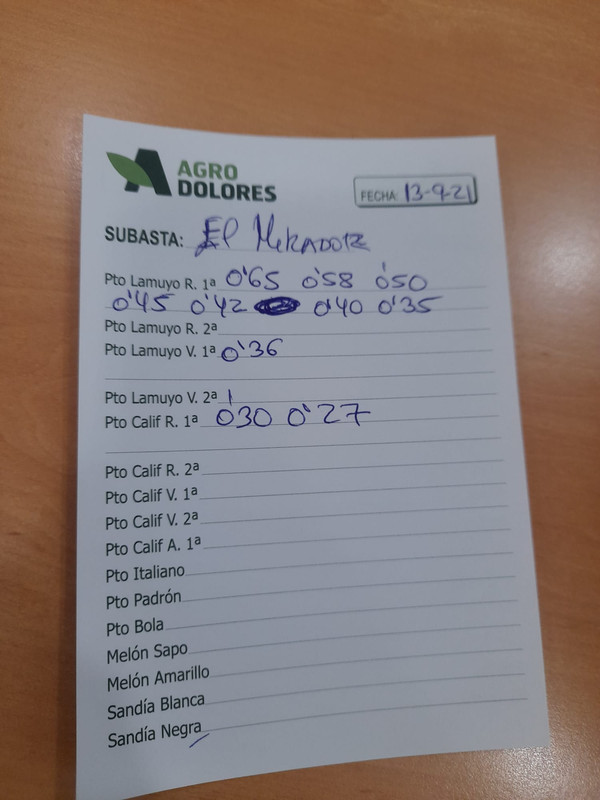 AGRO
DOLORES
FECHA: 13-9-21
SUBASTA: El Mirador
Pto Lamuyo R. 1ª 0'65 0'58 0'50
0'45 0'42 0'40 0'35
Pto Lamuyo R. 2ª
Pto Lamuyo V. 1ª 0'36
Pto Lamuyo V. 2ª
Pto Calif R. 1ª 0'30 0'27
Pto Calif R. 2ª
Pto Calif V. 1ª
Pto Calif V. 2ª
Pto Calif A. 1ª
Pto Italiano
Pto Padrón
Pto Bola
Melón Sapo
Melón Amarillo
Sandía Blanca
Sandía Negra